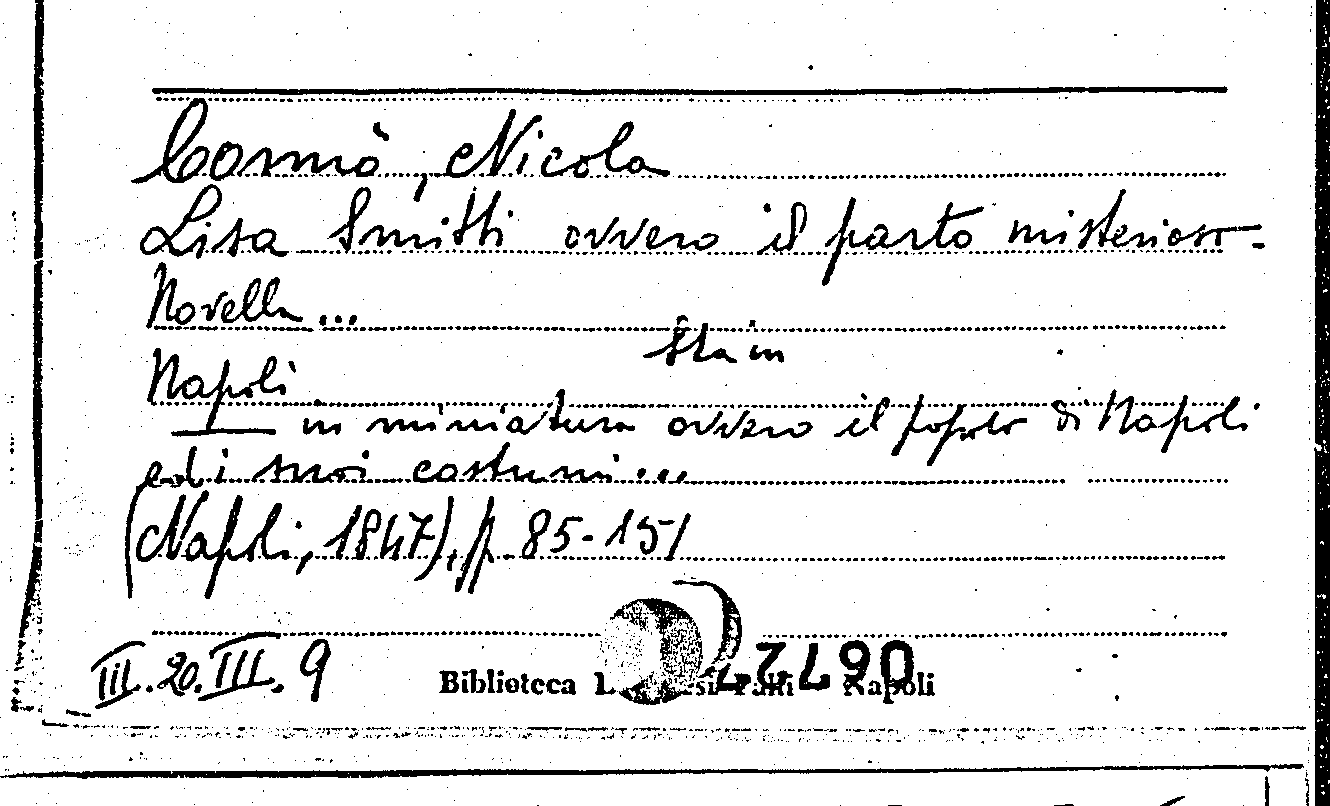 Comiò, Nicola
Lisa Smitti ovvero il parto misterioso-
Novella...
Sta in
Napoli
— in miniatura ovvero il popolo di Napoli
ed i suoi costumi...
(Napoli, 1847), p. 85-151
III. 20. III. 9
Biblioteca Napoli